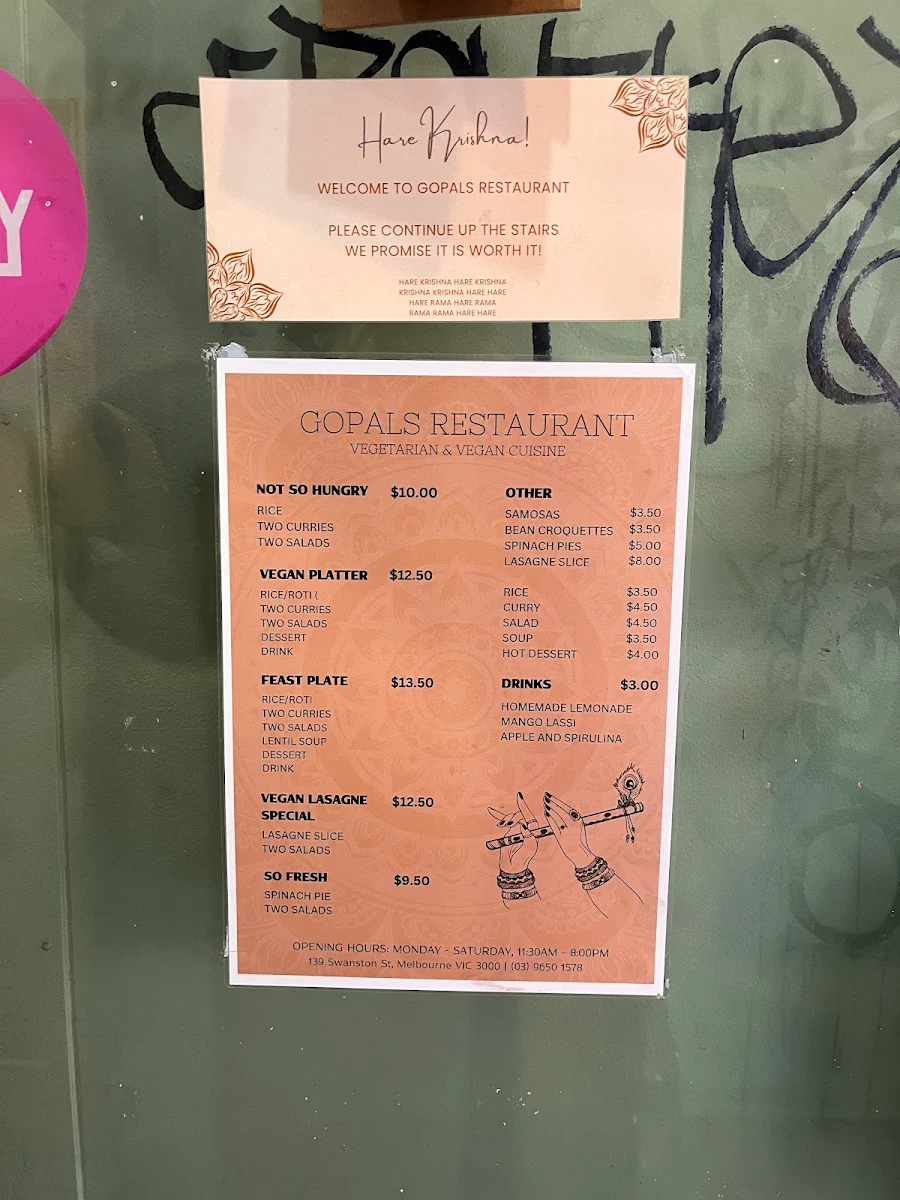 Y
Hare Krishna!
WELCOME TO GOPALS RESTAURANT
PLEASE CONTINUE UP THE STAIRS
WE PROMISE IT IS WORTH IT!
HARE KRISHNA HARE KRISHNA
KRISHNA KRISHNA HARE HARE
HARE RAMA HARE RAMA
RAMA RAMA HARE HARE
GOPALS RESTAURANT
VEGETARIAN & VEGAN CUISINE
NOT SO HUNGRY $10.00
RICE
TWO CURRIES
TWO SALADS
VEGAN PLATTER $12.50
RICE/ROTI (
TWO CURRIES
TWO SALADS
DESSERT
DRINK
FEAST PLATE $13.50
RICE/ROTI
TWO CURRIES
TWO SALADS
LENTIL SOUP
DESSERT
DRINK
VEGAN LASAGNE $12.50
SPECIAL
LASAGNE SLICE
TWO SALADS
SO FRESH $9.50
SPINACH PIE
TWO SALADS
OTHER
SAMOSAS $3.50
BEAN CROQUETTES $3.50
SPINACH PIES $5.00
LASAGNE SLICE $8.00
RICE $3.50
CURRY $4.50
SALAD $4.50
SOUP $3.50
HOT DESSERT $4.00
DRINKS $3.00
HOMEMADE LEMONADE
MANGO LASSI
APPLE AND SPIRULINA
OPENING HOURS: MONDAY - SATURDAY, 11:30AM - 8:00PM
139 Swanston St, Melbourne VIC 3000 | (03) 9650 1578